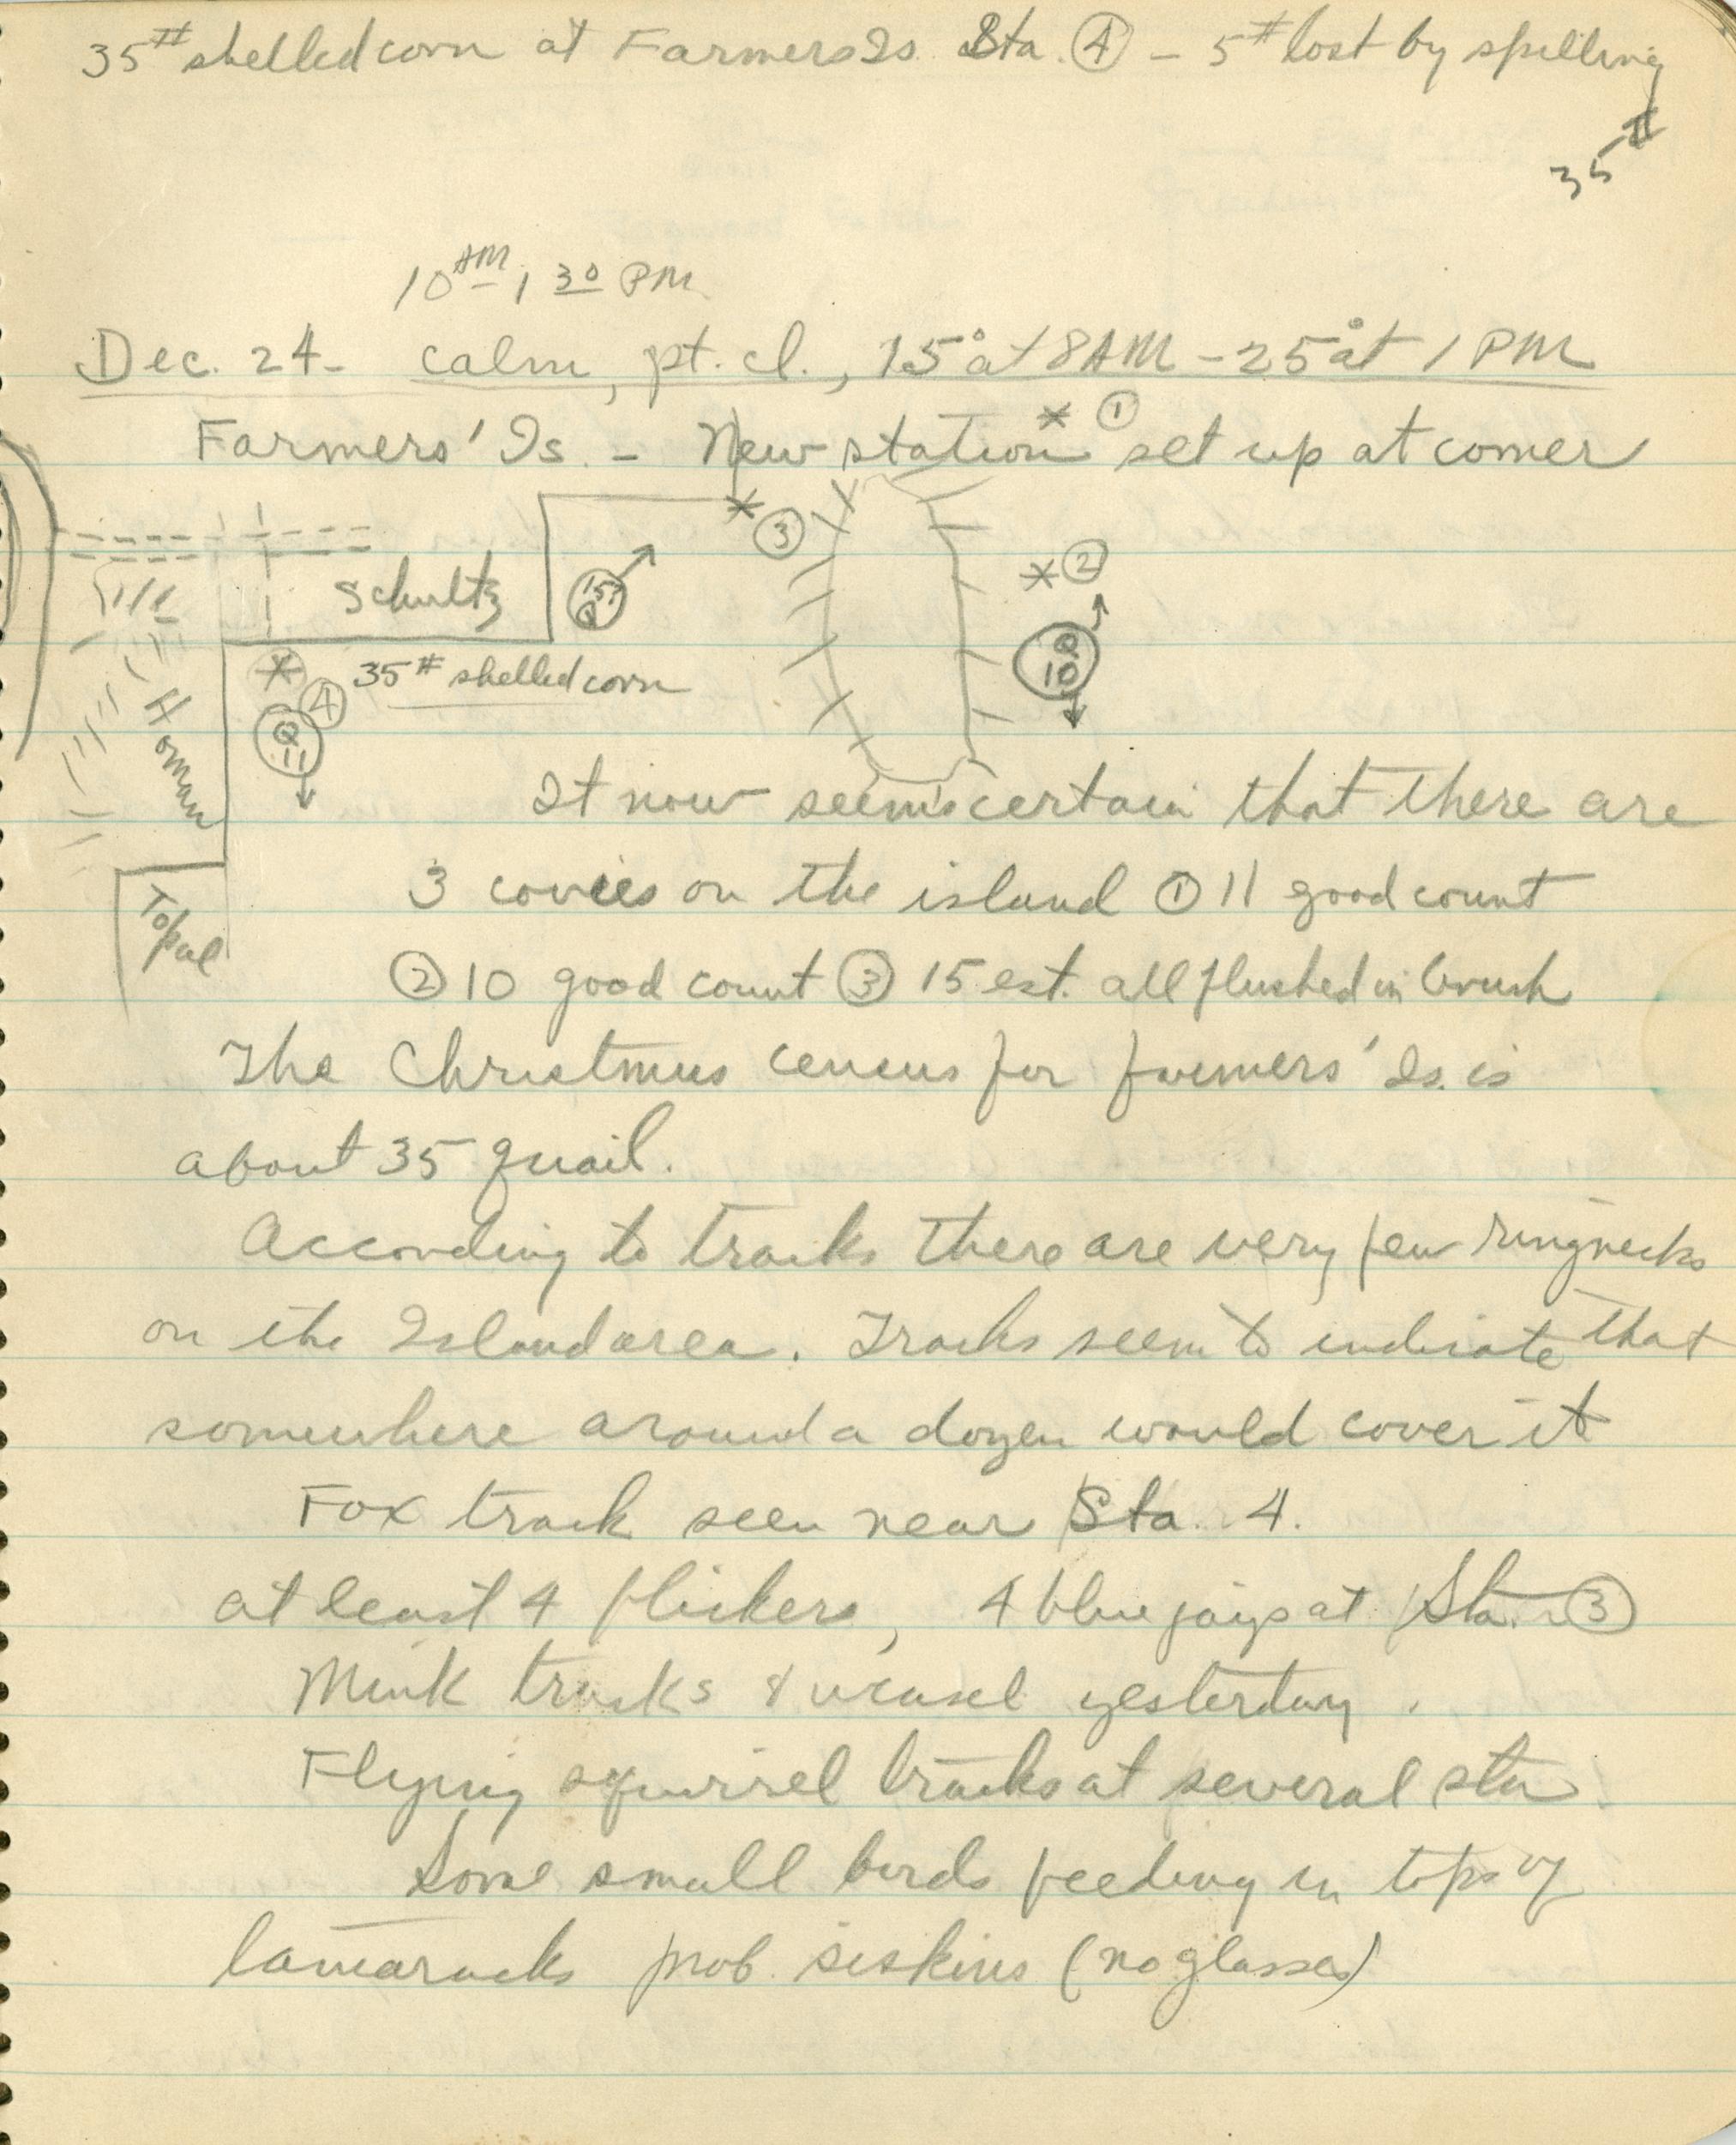 35# shelled corn at Farmers Is. Sta. ④ - 5# lost by spilling
35#
10 AM, 1 30 PM
Dec. 24 - calm, pt. cl., 15° at 8 AM - 25° at 1 PM
Farmers' Is. - New station * ① set up at corner
* ③
15?
Q
* ②
Schultz
Q
10
* ④ 35# shelled corn
Q
11
Homan
It now seems certain that there are
3 covies on the island ① 11 good count
Topal
② 10 good count ③ 15 est. all flushed in brush
The Christmas census for farmers' Is. is
about 35 quail.
According to tracks there are very few ringnecks
on the Island area. Tracks seem to indicate that
somewhere around a dozen would cover it
Fox track seen near Sta. 4.
at least 4 flickers, 4 blue jays at Sta. ③
Mink tracks & weasel yesterday.
Flying squirrel tracks at several sta.
Some small birds feeding in tops of
tamaracks prob. siskins (no glasses)